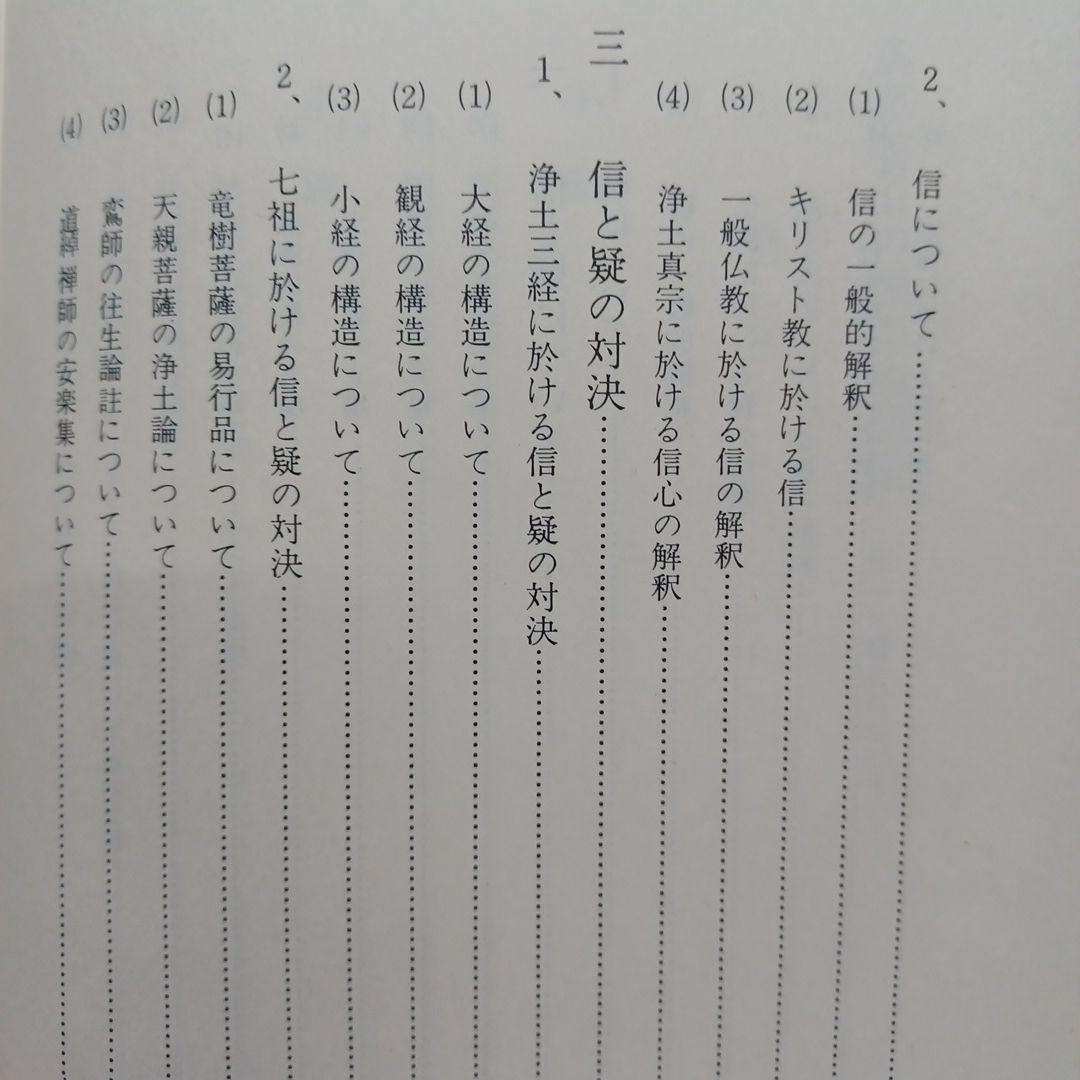 2、 信について
(1) 信の一般的解釈
(2) キリスト教に於ける信
(3) 一般仏教に於ける信の解釈
(4) 浄土真宗に於ける信心の解釈
三 信と疑の対決
1、 浄土三経に於ける信と疑の対決
(1) 大経の構造について
(2) 観経の構造について
(3) 小経の構造について
2、 七祖に於ける信と疑の対決
(1) 竜樹菩薩の易行品について
(2) 天親菩薩の浄土論について
(3) 鸞師の往生論註について
(4) 道綽禅師の安楽集について